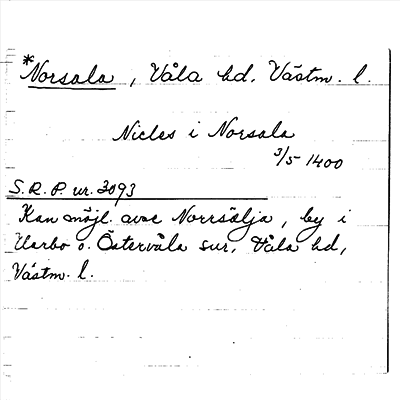 *Norsala, Våla hd. Västm. l.
Nicles i Norsala
3/5 1400
S.R.P. nr. 3093
Kan möjl. avse Norrsälja, by i
Harbo o. Östervåla snr, Våla hd,
Västm. l.